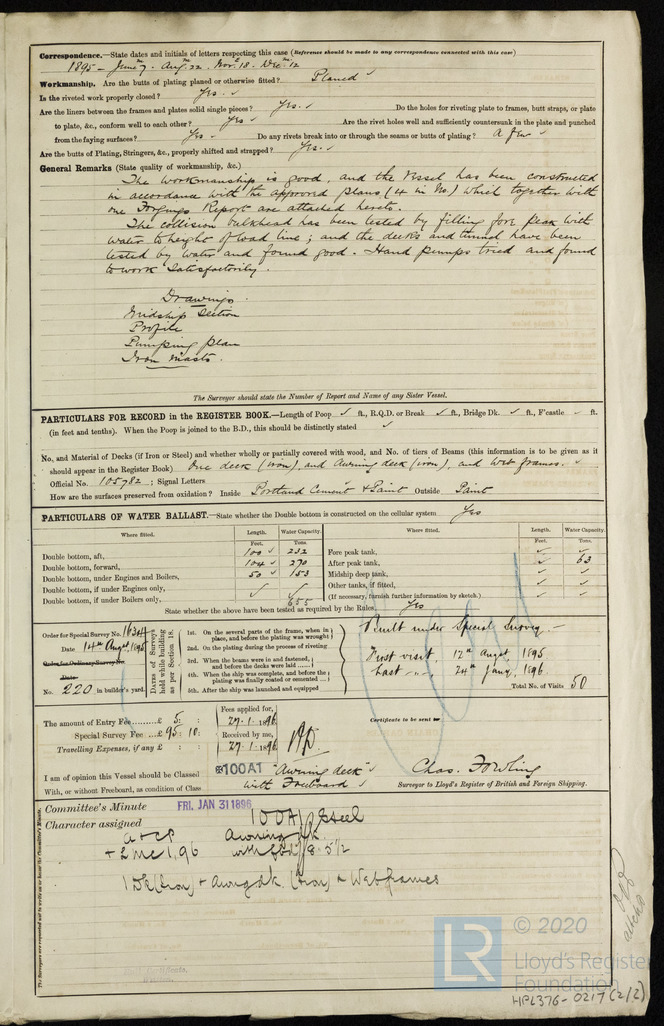 Correspondence.—State dates and initials of letters respecting this case (Reference should be made to any correspondence connected with this case)
1895 - June 7. Aug 22. Nov 18. Dec 12
Workmanship. Are the butts of plating planed or otherwise fitted? Planed ✓
Is the riveted work properly closed? Yes. ✓
Are the liners between the frames and plates solid single pieces? Yes. ✓ Do the holes for riveting plate to frames, butt straps, or plate
to plate, &c., conform well to each other? Yes ✓ Are the rivet holes well and sufficiently countersunk in the plate and punched
from the faying surfaces? Yes ✓ Do any rivets break into or through the seams or butts of plating? A few ✓
Are the butts of Plating, Stringers, &c., properly shifted and strapped? Yes. ✓
General Remarks (State quality of workmanship, &c.)
The workmanship is good, and the vessel has been constructed
in accordance with the approved plans (4 in No.) which together with
one Forgings Report are attached hereto.
The collision bulkhead has been tested by filling fore peak with
water to height of load line; and the decks and tunnel have been
tested by water and found good. Hand pumps tried and found
to work satisfactorily.
Drawings.
Midship Section
Profile
Pumping plan
Iron Masts.
The Surveyor should state the Number of Report and Name of any Sister Vessel.
PARTICULARS FOR RECORD in the REGISTER BOOK.—Length of Poop ✓ ft., R.Q.D. or Break ✓ ft., Bridge Dk. ✓ ft., F'castle ✓ ft.
(in feet and tenths). When the Poop is joined to the B.D., this should be distinctly stated ✓
No. and Material of Decks (if Iron or Steel) and whether wholly or partially covered with wood, and No. of tiers of Beams (this information is to be given as it
should appear in the Register Book) One deck (iron), and Awning deck (iron), and Web frames. ✓
Official No. 105782 ; Signal Letters
How are the surfaces preserved from oxidation? Inside Portland Cement & Paint Outside Paint
PARTICULARS OF WATER BALLAST.—State whether the Double bottom is constructed on the cellular system Yes
Where fitted. Length. Water Capacity. Where fitted. Length. Water Capacity.
Feet. Tons. Feet. Tons.
Double bottom, aft, 100 ✓ 232 Fore peak tank, ✓ ✓
Double bottom, forward, 104 ✓ 270 After peak tank, ✓ 63
Double bottom, under Engines and Boilers, 50 ✓ 153 Midship deep tank, ✓ ✓
Double bottom, if under Engines only, ✓ ✓ Other tanks, if fitted, ✓ ✓
Double bottom, if under Boilers only, 655 (If necessary, furnish further information by sketch.)
State whether the above have been tested as required by the Rules Yes
Order for Special Survey No. 1634
Date 14th Augst 1895
Order for Ordinary Survey No.
Date
No. 220 in builder's yard.
Dates of Surveys held while building as per Section 18.
1st. On the several parts of the frame, when in place, and before the plating was wrought
2nd. On the plating during the process of riveting
3rd. When the beams were in and fastened, and before the decks were laid
4th. When the ship was complete, and before the plating was finally coated or cemented
5th. After the ship was launched and equipped
Built under Special Survey.—
First visit, 12th Augst, 1895
Last „ „ 24th Jany, 1896.
Total No. of Visits 50
The amount of Entry Fee £ 5 : :
Special Survey Fee £ 95 : 10 :
Travelling Expenses, if any £ : :
Fees applied for,
27 . 1 . 1896
Received by me,
27 . 1 . 1896
Certificate to be sent to
I am of opinion this Vessel should be Classed ✠100A1 "Awning deck" ✓
With, or without Freeboard, as condition of Class with Freeboard ✓
Chas. Fowling
Surveyor to Lloyd's Register of British and Foreign Shipping.
Committee's Minute FRI. JAN 31 1896
Character assigned 100A1 Steel
A & CP Awning dk
+ LMC 1,96 with fbd 8.5½
1 Dk (Iron) + Awng dk. (Iron) & Web frames
The Surveyors are requested not to write on or below the Committee's Minute.
© 2020
LR
Lloyd's Register
Foundation
HPL376-0217 (2/2)